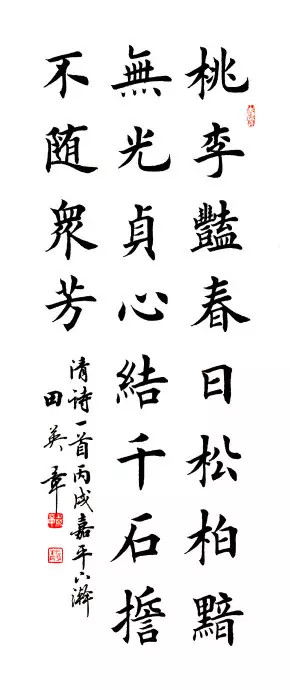 桃李豔春日松柏黯
無光貞心結千石擔
不随衆芳
清诗一首丙戌嘉平下澣
田英章